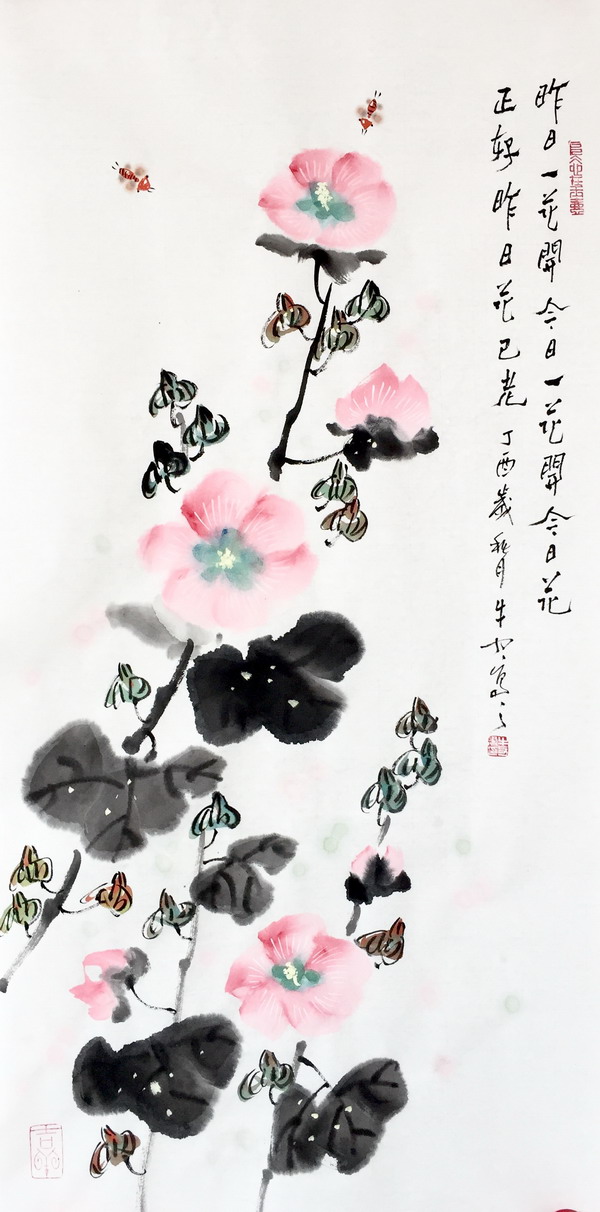 昨日一花開今日一花開今日花
正好昨日花已老丁酉歲秋月牛